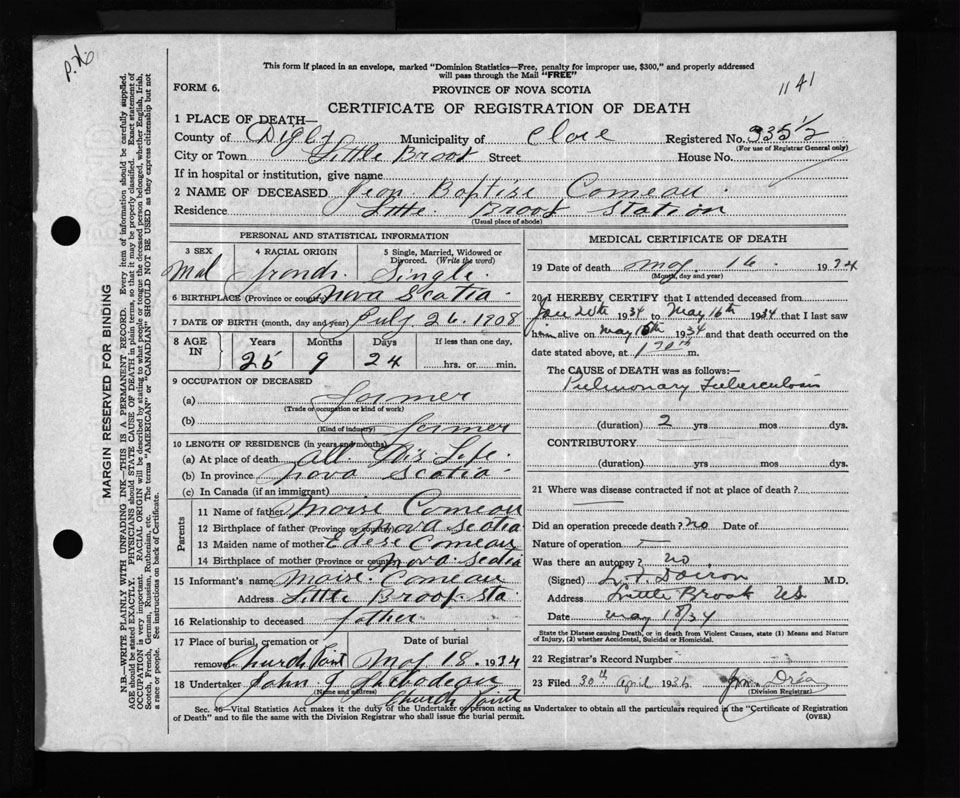 This form if placed in an envelope, marked "Dominion Statistics—Free, penalty for improper use, $300," and properly addressed
will pass through the Mail "FREE"
FORM 6.
PROVINCE OF NOVA SCOTIA
1141
CERTIFICATE OF REGISTRATION OF DEATH
1 PLACE OF DEATH—
County of Digby Municipality of Clare Registered No. 335½
(For use of Registrar General only)
City or Town Little Brook Street House No.
If in hospital or institution, give name
2 NAME OF DECEASED Jean Baptise Comeau
Residence Little Brook Station
(Usual place of abode)
PERSONAL AND STATISTICAL INFORMATION
3 SEX 4 RACIAL ORIGIN 5 Single, Married, Widowed or Divorced. (Write the word)
Mal Single.
6 BIRTHPLACE (Province or country) Nova Scotia
7 DATE OF BIRTH (month, day and year) July 26. 1908
8 AGE IN Years Months Days If less than one day,
25 9 24 hrs. or min.
9 OCCUPATION OF DECEASED
(a) farmer
(Trade or occupation or kind of work)
(b) farmer
(Kind of industry)
10 LENGTH OF RESIDENCE (in years and months)
(a) At place of death all His Life
(b) In province Nova Scotia
(c) In Canada (if an immigrant)
Parents
11 Name of father Moise Comeau
12 Birthplace of father (Province or country) Nova Scotia
13 Maiden name of mother Edese Comeau
14 Birthplace of mother (Province or country) Nova Scotia
15 Informant's name Moise Comeau
Address Little Brook Sta
16 Relationship to deceased father
17 Place of burial, cremation or Date of burial
removal Church Point May 18. 1934
18 Undertaker John J Thibodeau
(Name and address) Church Point
MEDICAL CERTIFICATE OF DEATH
19 Date of death May 16. 1934
(Month, day and year)
20 I HEREBY CERTIFY that I attended deceased from
Jan 20th 1934 to May 16th 1934 that I last saw
him alive on May 16th 1934 and that death occurred on the
date stated above, at m.
The CAUSE of DEATH was as follows:—
Pulmonary Tuberculosis
(duration) 2 yrs mos dys.
CONTRIBUTORY
(duration) yrs mos dys.
21 Where was disease contracted if not at place of death?
Did an operation precede death? no Date of
Nature of operation —
Was there an autopsy? no
(Signed) Doiron M.D.
Address Little Brook NS
Date May 18/34
State the Disease causing Death, or in death from Violent Causes, state (1) Means and Nature
of Injury, (2) whether Accidental, Suicidal or Homicidal.
22 Registrar's Record Number
23 Filed 30th April 1935
(Division Registrar)
Sec. 46—Vital Statistics Act makes it the duty of the Undertaker or person acting as Undertaker to obtain all the particulars required in the "Certificate of Registration
of Death" and to file the same with the Division Registrar who shall issue the burial permit. (OVER)
MARGIN RESERVED FOR BINDING
N.B.—WRITE PLAINLY WITH UNFADING INK—THIS IS A PERMANENT RECORD. Every item of information should be carefully supplied.
AGE should be stated EXACTLY. PHYSICIANS should STATE CAUSE OF DEATH in plain terms, so that it may be properly classified. Exact statement of
OCCUPATION is very important. RACIAL ORIGIN will be described by stating to what people or tongue the deceased person belonged, whether English, Irish,
Scotch, French, German, Russian, Ruthenian, etc. The terms "AMERICAN" or "CANADIAN" SHOULD NOT BE USED as they express citizenship but not
a race or people. See instructions on back of Certificate.